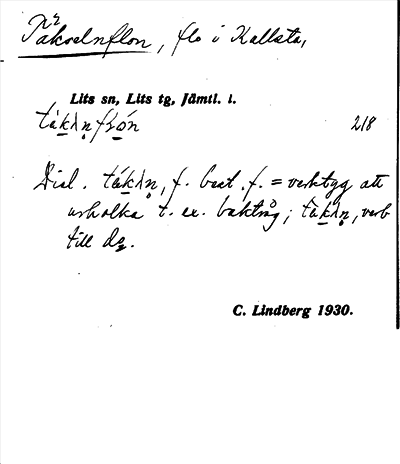 Täkselnflon, flo i Kallsta,
Lits sn, Lits tg, Jämtl. l.
218
Dial. f. best. f. = verktyg att
urholka t. ex. baktråg; verb
till do.
C. Lindberg 1930.